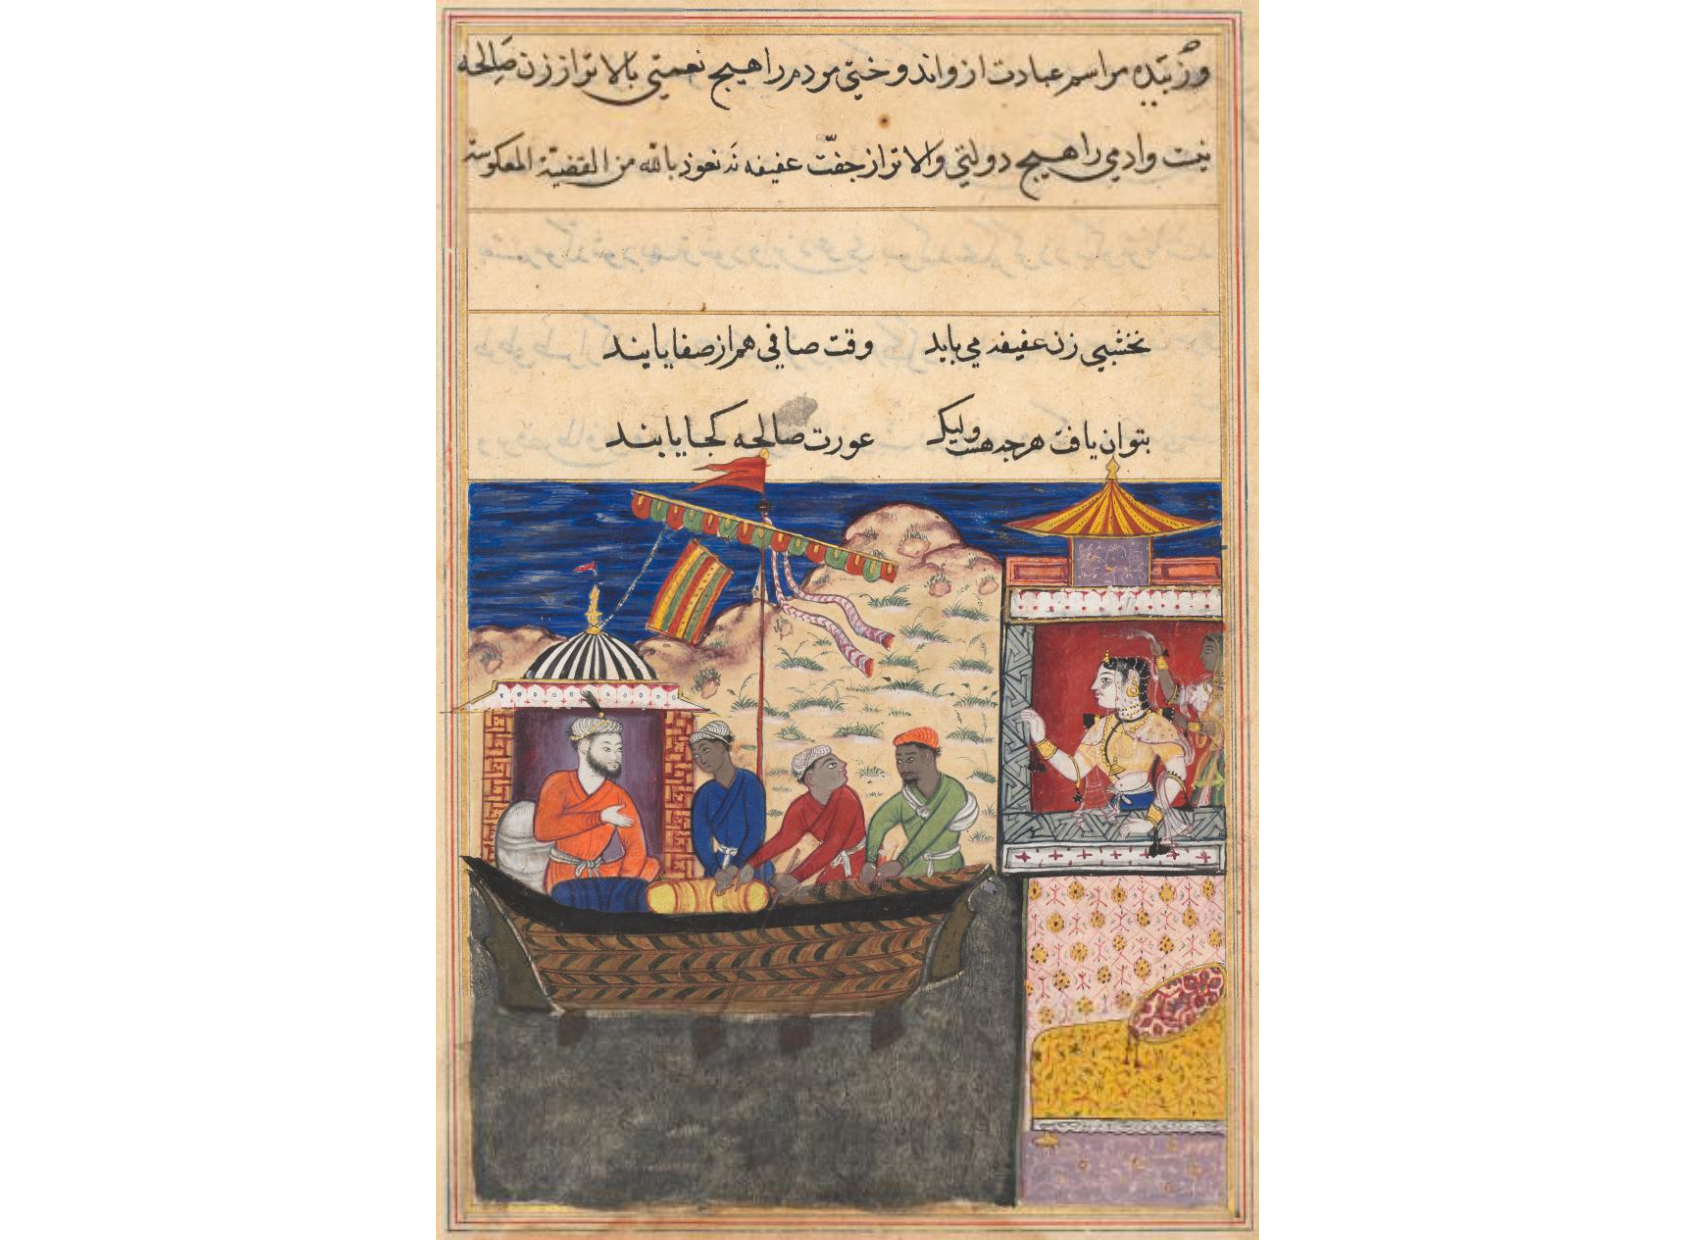 وزبَیده مراسم عبادت از واندوختی مردم را هیچ نعمتی بالاتر از زن صَالِحَه
نیست وادمی را هیچ دولتی والاتر از جفّت عفیفه نَه نعوذ بالله من القضیّة المعکوسة
نخشبی زن عفیفه می باید وقت صافی هم از صفا یابند
بتوان یافت هرچه هست ولیک عورت صالحه کجا یابند